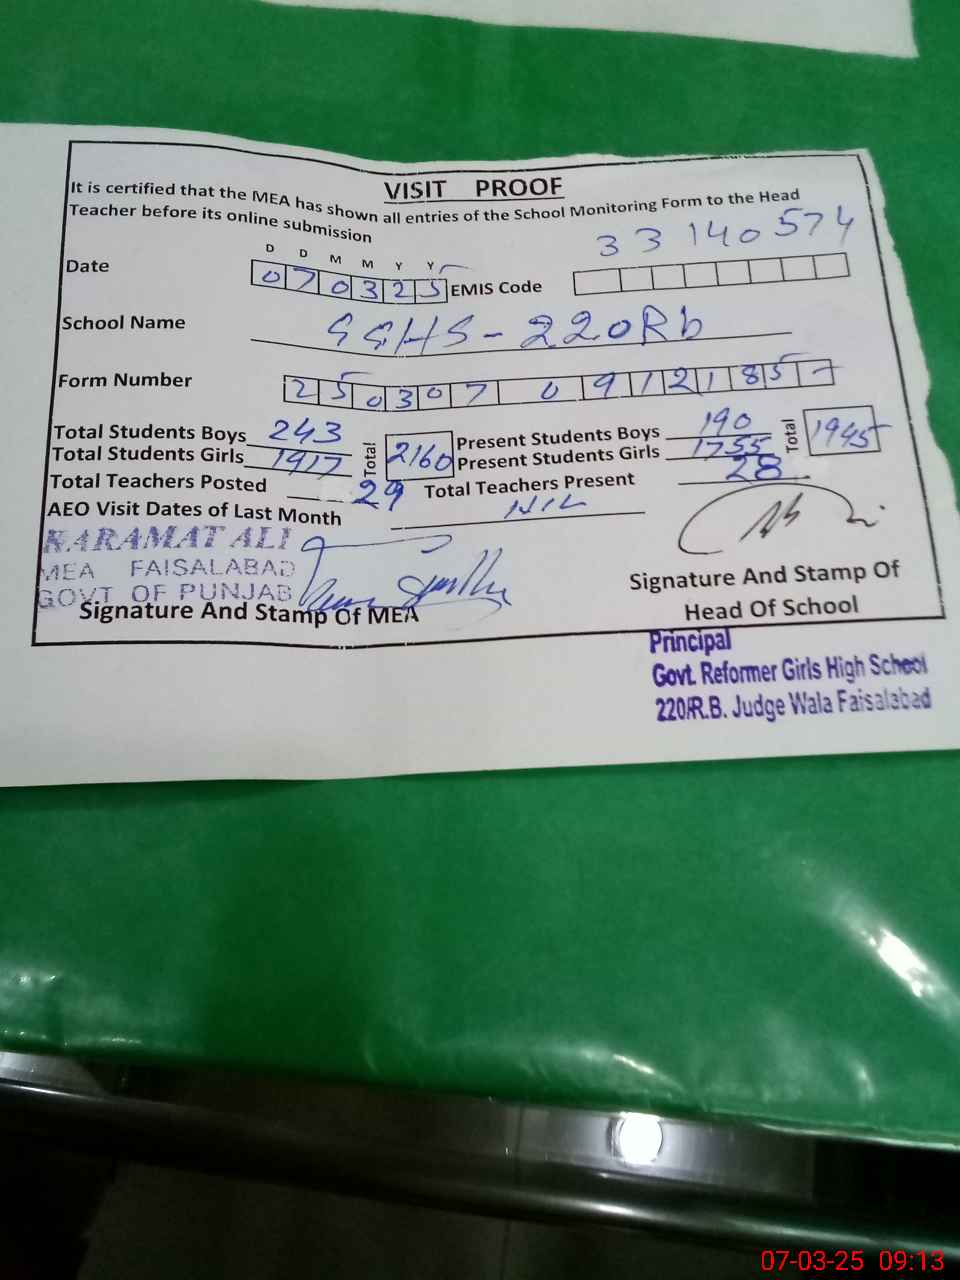 VISIT PROOF
It is certified that the MEA has shown all entries of the School Monitoring Form to the Head
Teacher before its online submission
33140574
D D M M Y Y
Date 070325 EMIS Code
School Name GGHS-220Rb
Form Number 250307 0912185
Total Students Boys 243 Total 2160 Present Students Boys 190 Total 1945
Total Students Girls 1917 Present Students Girls 1755
Total Teachers Posted 29 Total Teachers Present 28
AEO Visit Dates of Last Month NIL
KARAMAT ALI
MEA FAISALABAD
GOVT OF PUNJAB
Signature And Stamp Of MEA
Signature And Stamp Of
Head Of School
Principal
Govt. Reformer Girls High School
220/R.B. Judge Wala Faisalabad
07-03-25 09:13